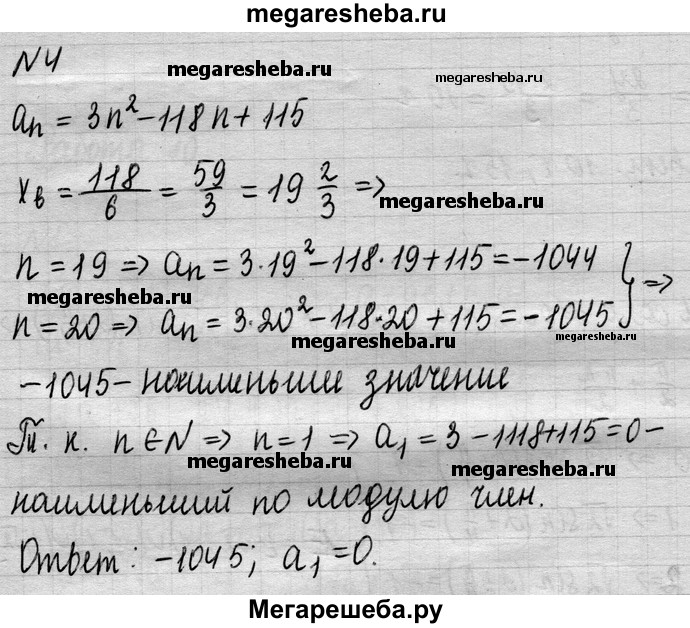 megaresheba.ru
N4
megaresheba.ru megaresheba.ru
aₙ = 3n² - 118n + 115
xв = 118/6 = 59/3 = 19 2/3 =>
megaresheba.ru
n = 19 => aₙ = 3·19² - 118·19 + 115 = -1044
megaresheba.ru
n = 20 => aₙ = 3·20² - 118·20 + 115 = -1045 } =>
megaresheba.ru megaresheba.ru
-1045 - наименьшие значение
Т. к. n ∈ N => n = 1 => a₁ = 3 - 118 + 115 = 0 -
megaresheba.ru megaresheba.ru
наименьший по модулю член.
Ответ: -1045; a₁ = 0.
Мегарешеба.ру